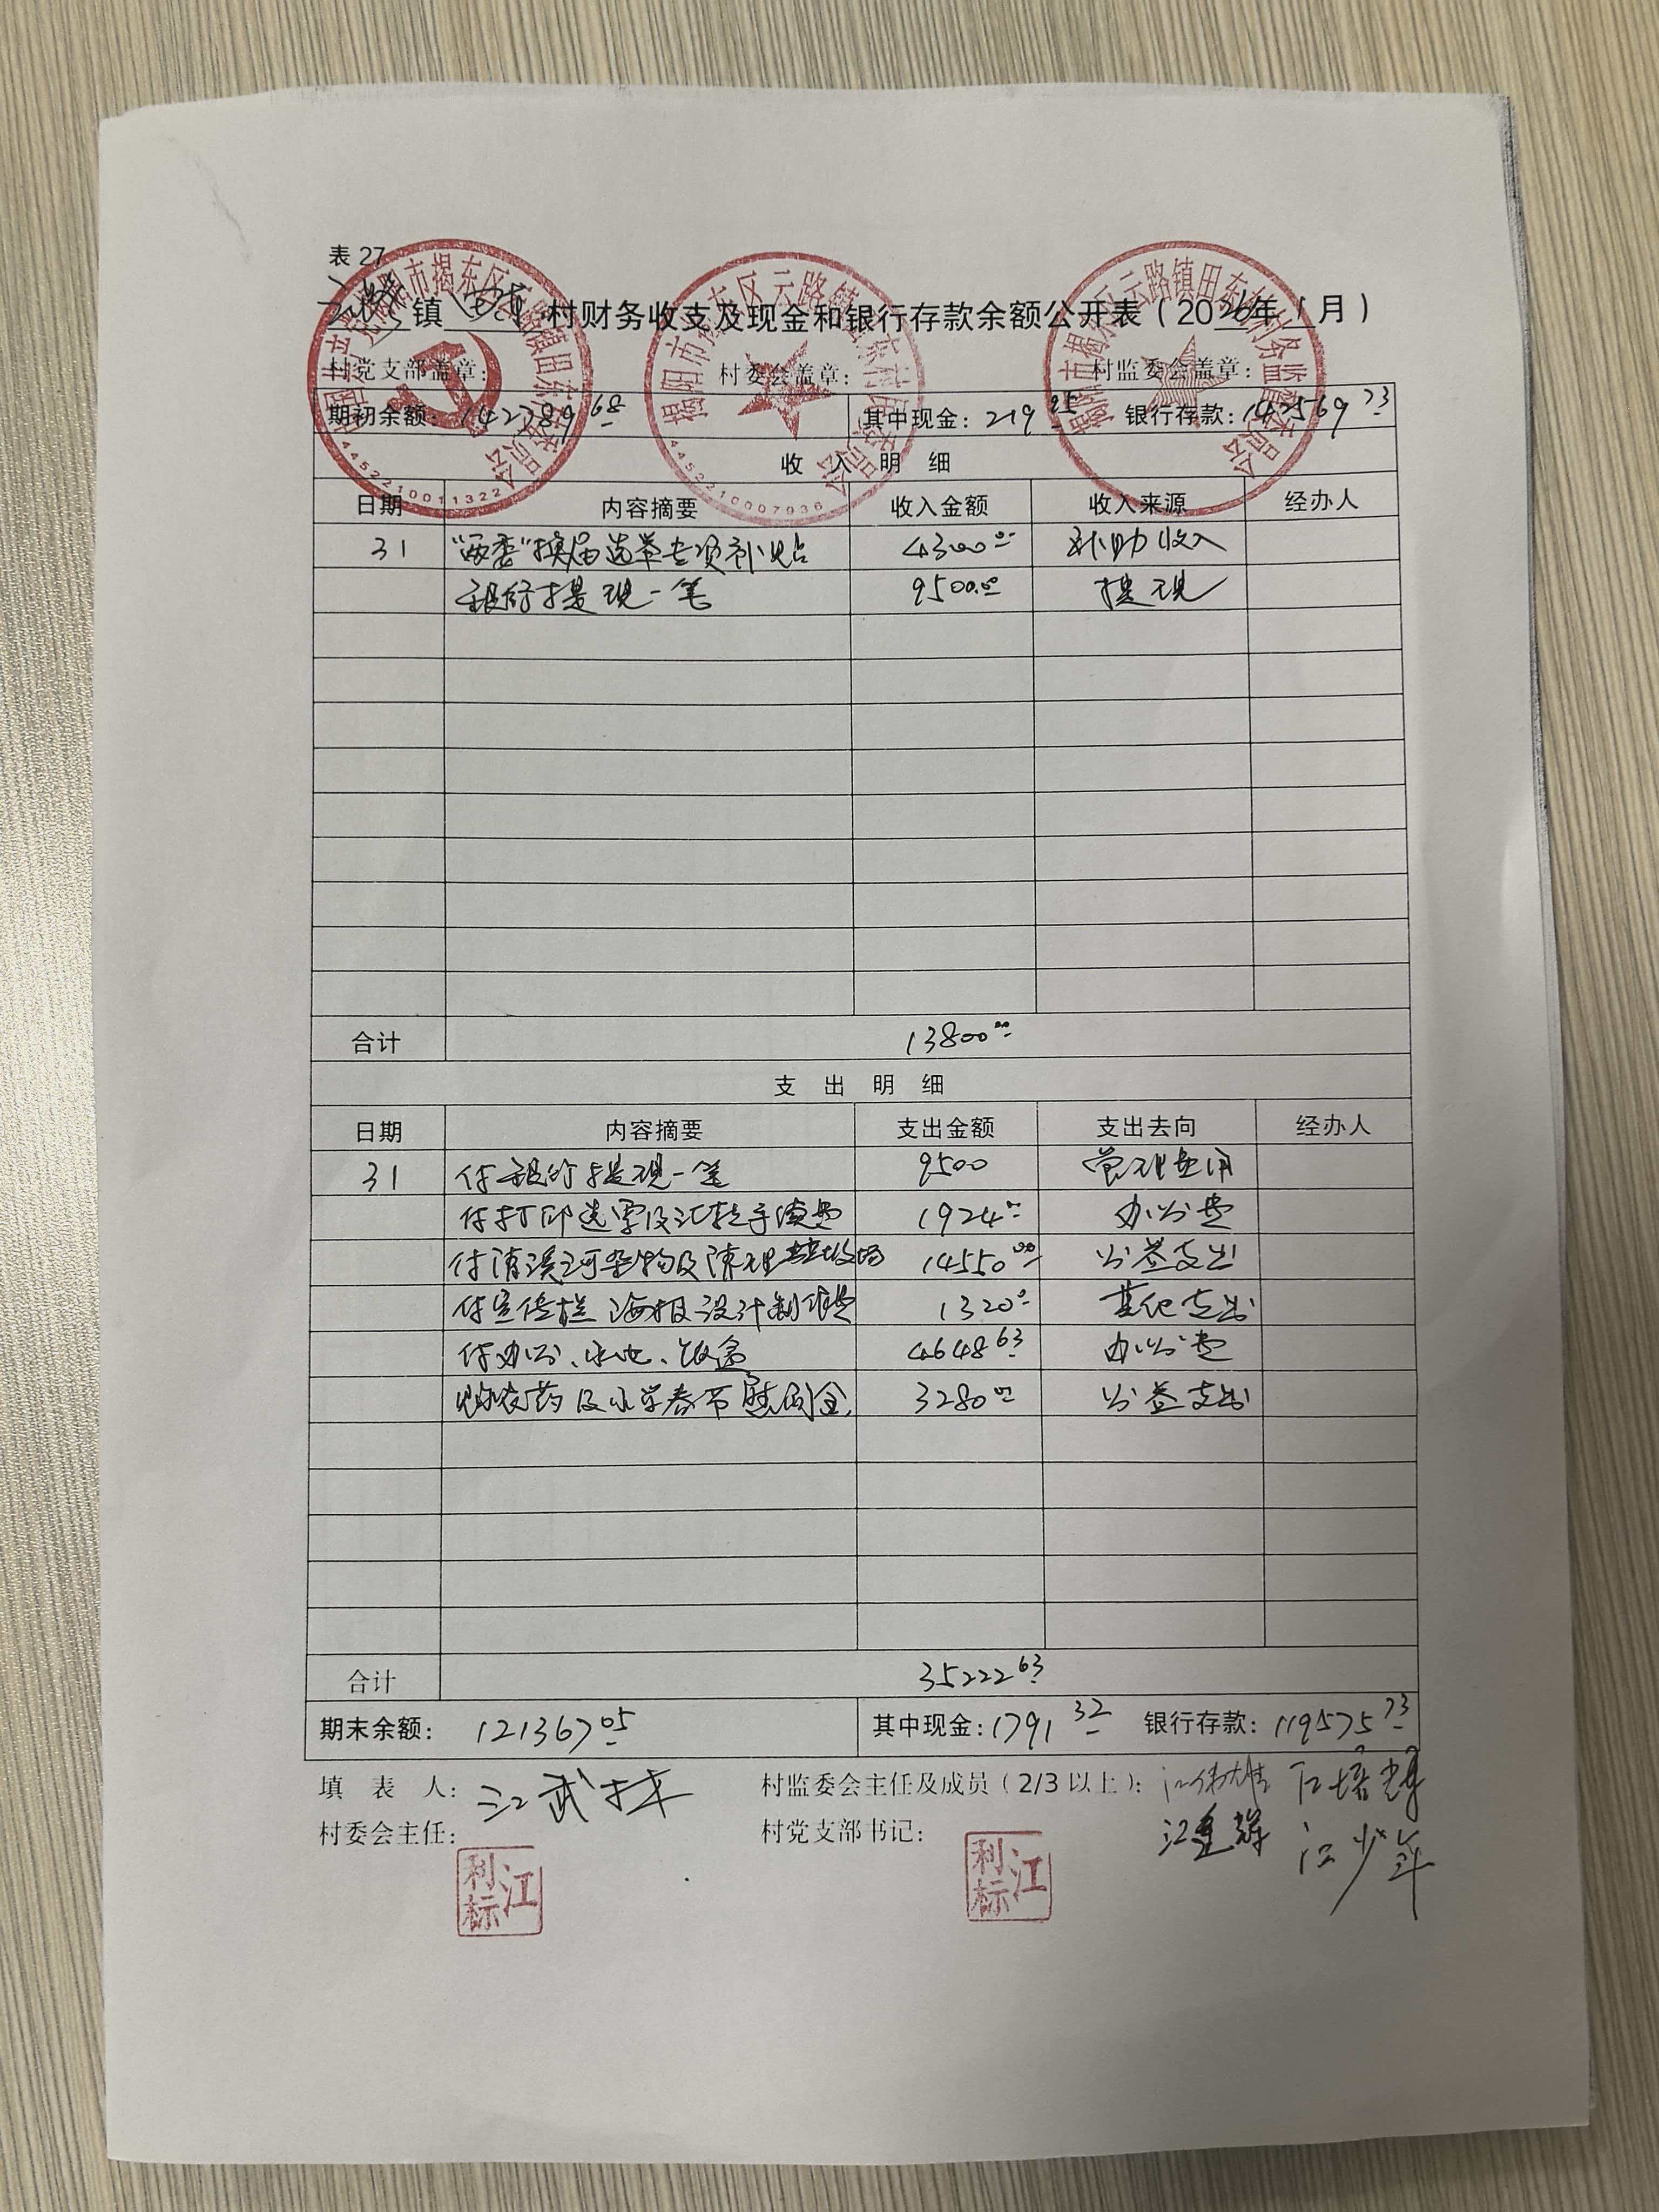 表 27
云路 镇 田东 村财务收支及现金和银行存款余额公开表（2026年 1 月）
村党支部盖章： 村委会盖章： 村监委会盖章：
期初余额：142789.68 其中现金：219.95 银行存款：142569.73
收 入 明 细
日期 内容摘要 收入金额 收入来源 经办人
31 “两委”换届选举专项补贴 4300.00 补助收入
银行提现一笔 9500.00 提现
合计 13800.00
支 出 明 细
日期 内容摘要 支出金额 支出去向 经办人
31 付银行提现一笔 9500 管理费用
付打印选票及汇款手续费 1924.00 办公费
付清溪河杂物及清理垃圾场 14550.00 公益支出
付宣传栏、海报设计制作费 1320.00 其他支出
付办公、水电、饭盒 4648.63 办公费
购农药及小学春节慰问金 3280.00 公益支出
合计 35222.63
期末余额：121367.05 其中现金：1791.32 银行存款：119575.73
填 表 人：江武林 村监委会主任及成员（2/3 以上）：
村委会主任： 村党支部书记： 江少年
江利标 江利标
4452210011322
4452210007936